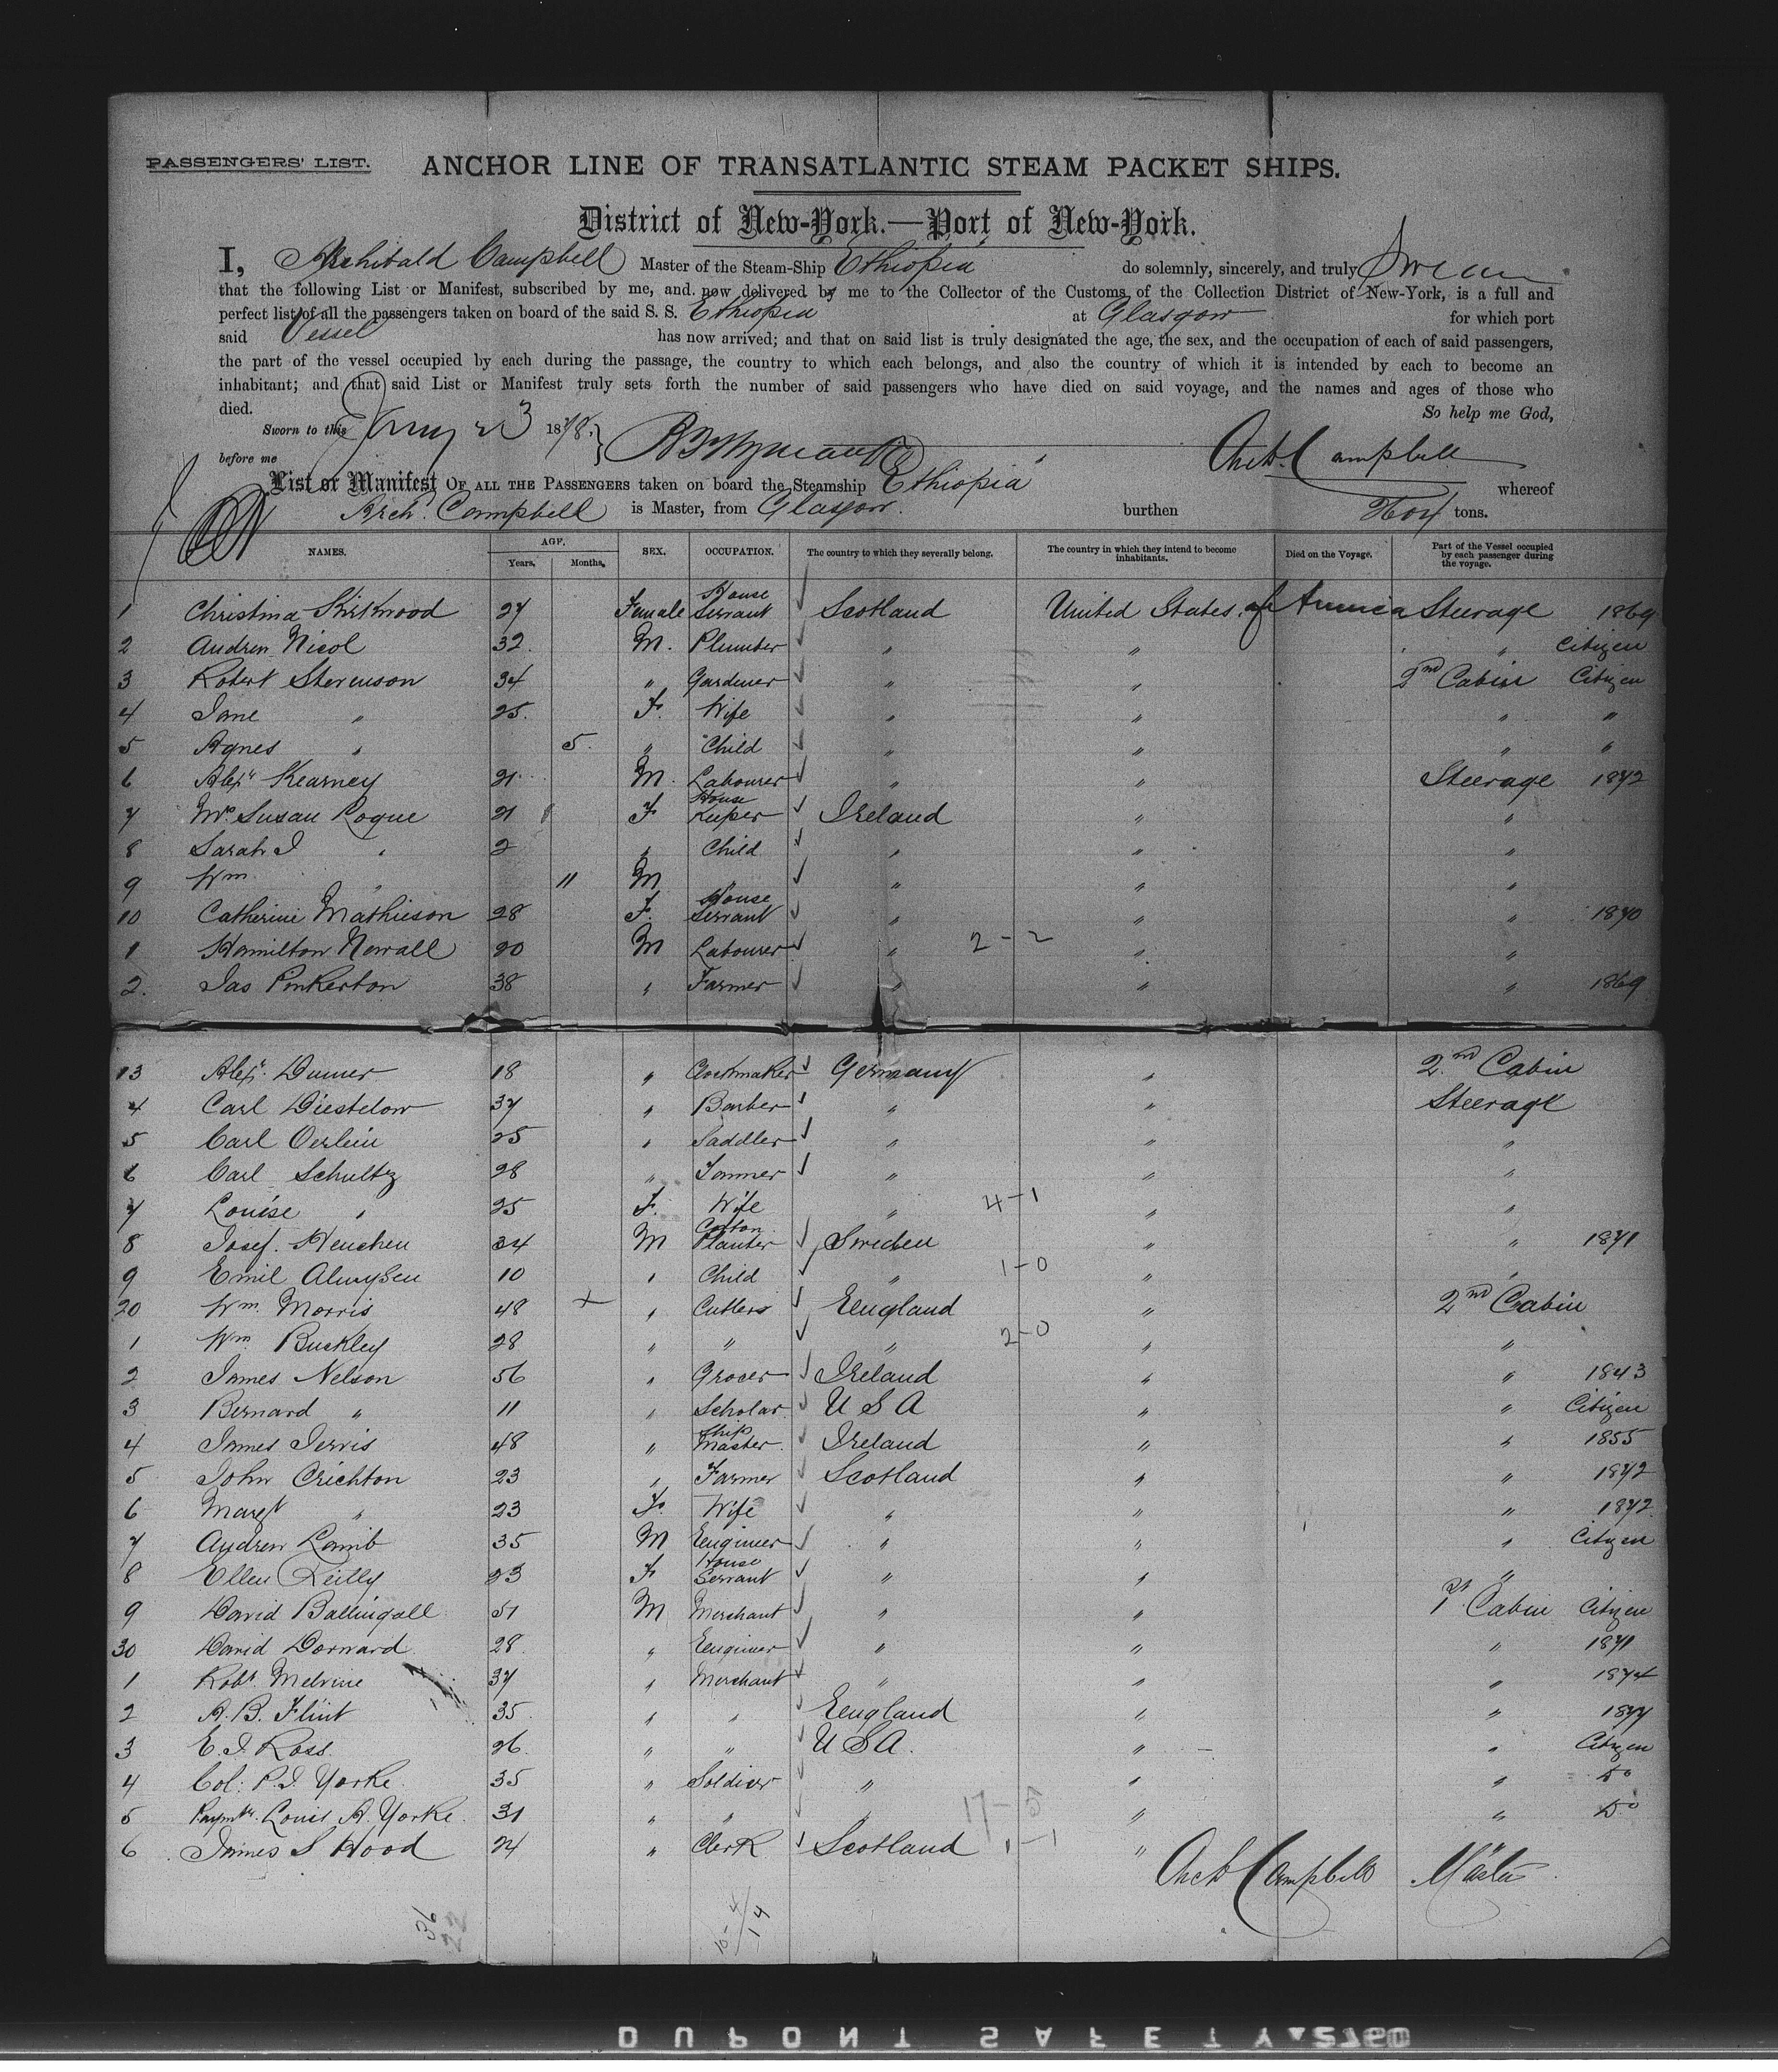 PASSENGERS' LIST. ANCHOR LINE OF TRANSATLANTIC STEAM PACKET SHIPS.
District of New-York.—Port of New-York.
I, Archibald Campbell Master of the Steam-Ship Ethiopia do solemnly, sincerely, and truly Swear
that the following List or Manifest, subscribed by me, and now delivered by me to the Collector of the Customs of the Collection District of New-York, is a full and
perfect list of all the passengers taken on board of the said S. S. Ethiopia at Glasgow for which port
said Vessel has now arrived; and that on said list is truly designated the age, the sex, and the occupation of each of said passengers,
the part of the vessel occupied by each during the passage, the country to which each belongs, and also the country of which it is intended by each to become an
inhabitant; and that said List or Manifest truly sets forth the number of said passengers who have died on said voyage, and the names and ages of those who
died. So help me God,
Sworn to this 23 1878
before me Arch. Campbell
List or Manifest OF ALL THE PASSENGERS taken on board the Steamship Ethiopia whereof
Arch. Campbell is Master, from Glasgow. burthen tons.
NAMES. AGE. SEX. OCCUPATION. The country to which they severally belong. The country in which they intend to become inhabitants. Died on the Voyage. Part of the Vessel occupied by each passenger during the voyage.
Years. Months.
1 Christina Kirkwood 27 Female House Servant Scotland United States of America Steerage 1869
2 Andrew Nicol 32 M. Plumber " " " Citizen
3 Robert Stevenson 34 " Gardener " " 2nd Cabin Citizen
4 Jane " 25 F. Wife " " " "
5 Agnes " 5 " Child " " " "
6 Alexr Kearney 21 M. Labourer " " Steerage 1872
7 Mrs Susan Logue 21 F House Keeper Ireland " "
8 Sarah J " 2 " Child " " "
9 Wm " 11 M " " "
10 Catherine Mathieson 28 F. House Servant " " " 1870
1 Hamilton Newall 20 M Labourer " 2-2 " "
2. Jas Pinkerton 38 " Farmer " " " 1869
13 Alexr. Dumer 18 " Clockmaker Germany " 2nd Cabin
4 Carl Diestelow 37 " Barber " " Steerage
5 Carl Oerlein 25 " Saddler " " "
6 Carl Schultz 28 " " " "
7 Louise " 25 F. Wife " 4-1 " "
8 Josef. Heuchen 34 M Cotton Planter Sweden " " 1871
9 Emil 10 " Child " 1-0 " "
20 Wm. Morris 48 " Cutlers England " 2nd Cabin
1 Wm Buckley 28 " " " 2-0 " "
2 James Nelson 56 " Grocer Ireland " " 1843
3 Bernard " 11 " Scholar U S A " " Citizen
4 James Jervis 48 " Ship Master Ireland " " 1855
5 John Crichton 23 " Farmer Scotland " " 1872
6 Margt " 23 F. Wife " " " 1872
7 Andrew Lamb 35 M Engineer " " " Citizen
8 Ellen Reilly 23 F House Servant " " "
9 David Ballingall 51 M Merchant " " 1st Cabin Citizen
30 David Dorward 28 " Engineer " " " 1871
1 Robt Melvine 37 " Merchant " " " 1874
2 A. B. Flint 35 " " England " " 1877
3 E. J. Ross 26 " " U S A. " " Citizen
4 Col: P. J. Yorke 35 " Soldier " " " Do
5 Paymtr. Louis A. Yorke 31 " " " 17-5 " " Do
6 James S Hood 24 " Clerk Scotland 1-1 " "
Arch Campbell Master
36
10-4
14
DUPONT SAFETY 2760